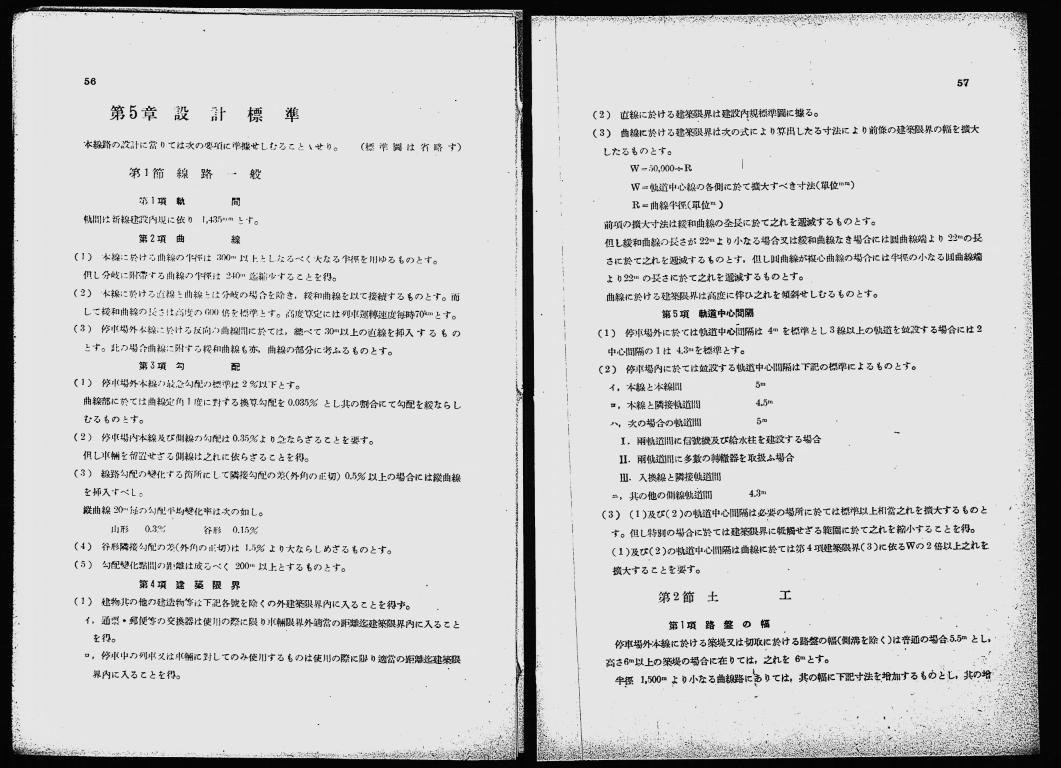 56
第5章 設 計 標 準
本線路の設計に當りては次の要項に準據せしむることゝせり。 (標 準 圖 は 省 略 す)
第1節 線 路 一 般
第1項 軌 間
軌間は新線建設内規に依り 1,435mm とす。
第2項 曲 線
(1) 本線に於ける曲線の半徑は 300m 以上としなるべく大なる半徑を用ゆるものとす。
但し分岐に附帶する曲線の半徑は 240m 迄縮少することを得。
(2) 本線に於ける直線と曲線とは分岐の場合を除き,緩和曲線を以て接續するものとす。而
して緩和曲線の長さは高度の 600 倍を標準とす。高度算定には列車運轉速度毎時70kmとす。
(3) 停車場外本線に於ける反向の曲線間に於ては,總べて 30m以上の直線を挿入 す る も の
とす。此の場合曲線に附する緩和曲線も亦,曲線の部分に考ふるものとす。
第3項 勾 配
(1) 停車場外本線の最急勾配の標準は 2 %以下とす。
曲線部に於ては曲線定角 1 度に對する換算勾配を 0.035% とし其の割合にて勾配を緩ならし
むるものとす。
(2) 停車場内本線及び側線の勾配は 0.35%より急ならざることを要す。
但し車輛を留置せざる側線は之れに依らざることを得。
(3) 線路勾配の變化する箇所にして隣接勾配の差(外角の正切) 0.5% 以上の場合には縱曲線
を挿入すべし。
縱曲線 20m 毎の勾配平均變化率は次の如し。
山形 0.3% 谷形 0.15%
(4) 谷形隣接勾配の差(外角の正切)は 1.5% より大ならしめざるものとす。
(5) 勾配變化點間の距離は成るべく 200m 以上とするものとす。
第4項 建 築 限 界
(1) 建物其の他の建造物等は下記各號を除くの外建築限界内に入ることを得ず。
イ,通票・郵便等の交換器は使用の際に限り車輛限界外適當の距離迄建築限界内に入ること
を得。
ロ,停車中の列車又は車輛に對してのみ使用するものは使用の際に限り適當の距離迄建築限
界内に入ることを得。
57
(2) 直線に於ける建築限界は建設内規標準圖に據る。
(3) 曲線に於ける建築限界は次の式により算出したる寸法により前條の建築限界の幅を擴大
したるものとす。
W=50,000÷R
W=軌道中心線の各側に於て擴大すべき寸法(單位mm)
R=曲線半徑(單位m)
前項の擴大寸法は緩和曲線の全長に於て之れを遞減するものとす。
但し緩和曲線の長さが 22mより小なる場合又は緩和曲線なき場合には圓曲線端より 22mの長
さに於て之れを遞減するものとす,但し圓曲線が複心曲線の場合には半徑の小なる圓曲線端
より22m の長さに於て之れを遞減するものとす。
曲線に於ける建築限界は高度に伴ひ之れを傾斜せしむるものとす。
第5項 軌道中心間隔
(1) 停車場外に於ては軌道中心間隔は 4m を標準とし 3 線以上の軌道を竝設する場合には 2
中心間隔の 1 は 4.3mを標準とす。
(2) 停車場内に於ては竝設する軌道中心間隔は下記の標準によるものとす。
イ,本線と本線間 5m
ロ,本線と隣接軌道間 4.5m
ハ,次の場合の軌道間 5m
I. 兩軌道間に信號機及び給水柱を建設する場合
II. 兩軌道間に多數の轉轍器を取扱ふ場合
III. 入換線と隣接軌道間
ニ,其の他の側線軌道間 4.3m
(3) (1)及び(2)の軌道中心間隔は必要の場所に於ては標準以上相當之れを擴大するものと
す。但し特別の場合に於ては建築限界に牴觸せざる範圍に於て之れを縮小することを得。
(1)及び(2)の軌道中心間隔は曲線に於ては第 4 項建築限界(3)に依るWの 2 倍以上之れを
擴大することを要す。
第2節 土 工
第1項 路 盤 の 幅
停車場外本線に於ける築堤又は切取に於ける路盤の幅(側溝を除く)は普通の場合5.5m とし,
高さ6m以上の築堤の場合に在りては,之れを 6mとす。
半徑 1,500m より小なる曲線路にありては,其の幅に下記寸法を増加するものとし,其の増